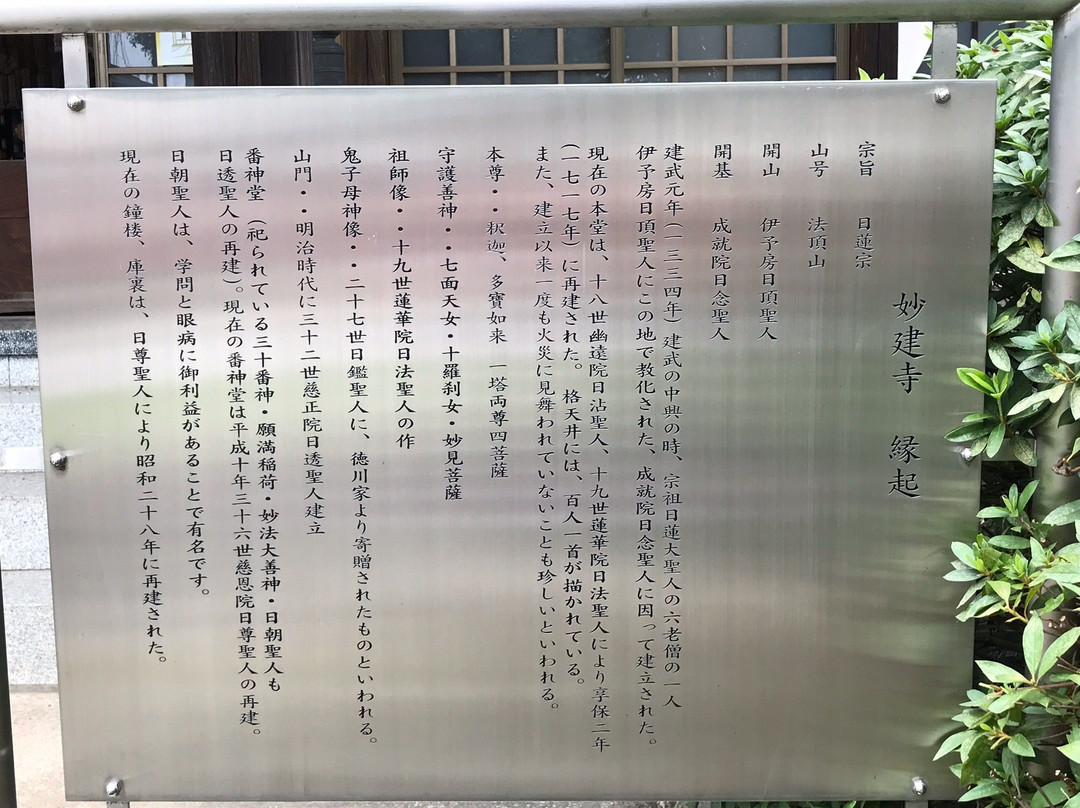 妙建寺 縁起
宗旨 日蓮宗
山号 法頂山
開山 伊予房日頂聖人
開基 成就院日念聖人
建武元年(一三三四年)建武の中興の時、宗祖日蓮大聖人の六老僧の一人
伊予房日頂聖人にこの地で教化された、成就院日念聖人に因って建立された。
現在の本堂は、十八世幽遠院日沾聖人、十九世蓮華院日法聖人により享保二年
(一七一七年)に再建された。 格天井には、百人一首が描かれている。
また、建立以来一度も火災に見舞われていないことも珍しいといわれる。
本尊・・釈迦、多寶如来 一塔両尊四菩薩
守護善神・・七面天女・十羅刹女・妙見菩薩
祖師像・・十九世蓮華院日法聖人の作
鬼子母神像・・二十七世日鑑聖人に、徳川家より寄贈されたものといわれる。
山門・・明治時代に三十二世慈正院日透聖人建立
番神堂(祀られている三十番神・願満稲荷・妙法大善神・日朝聖人も
日透聖人の再建)。現在の番神堂は平成十年三十六世慈恩院日尊聖人の再建。
日朝聖人は、学問と眼病に御利益があることで有名です。
現在の鐘楼、庫裏は、日尊聖人により昭和二十八年に再建された。